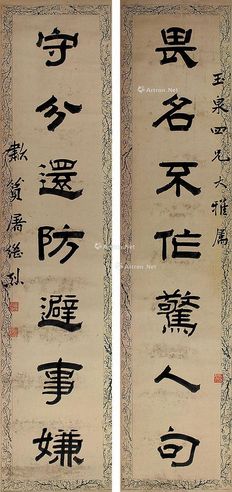 玉泉四兄大雅屬
畏名不作驚人句
守分還防避事嫌
屠繼
Artron.Net
Artron.Net